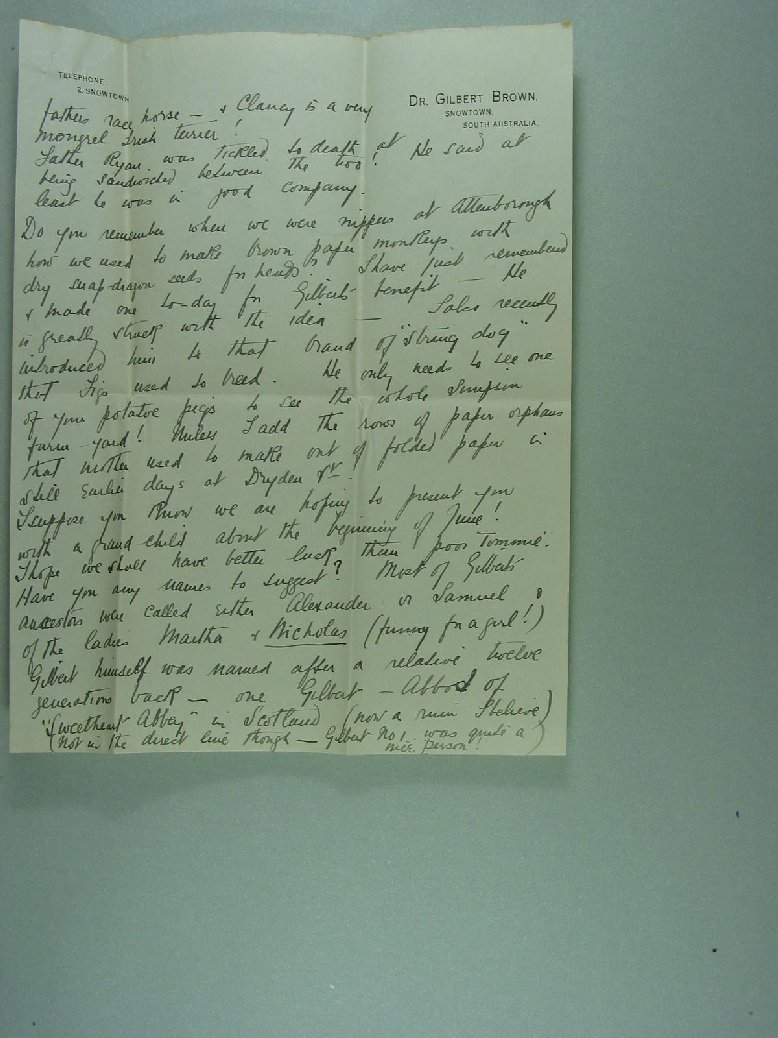 TELEPHONE
2, SNOWTOWN
DR. GILBERT BROWN.
SNOWTOWN,
SOUTH AUSTRALIA.
fathers race horse — & Clancy is a very
mongrel Irish terrier!
Father Ryan was tickled to death at
being sandwiched between the two! He said at
least he was in good company.
Do you remember when we were nippers at Attenborough
how we used to make brown paper monkeys with
dry snap-dragon seeds for heads? I have just remembered
& made one to-day for Gilbert's benefit — He
is greatly struck with the idea — recently
introduced him to that brand of "string dog"
that Figs used to breed. He only needs to see one
of your potatoe pigs to see the whole Simpson
farm-yard! Unless I add the rows of paper orphans
that mother used to make out of folded paper in
still earlier days at Dryden St.
I suppose you know we are hoping to present you
with a grand child about the beginning of June!
I hope we shall have better luck than poor Tommie.
Have you any names to suggest? Most of Gilberts
ancestors were called either Alexander or Samuel!
of the ladies Martha & Nicholas (funny for a girl!)
Gilbert himself was named after a relative twelve
generations back — one Gilbert — Abbot of
"Sweetheart Abbey" in Scotland (now a ruin I believe)
(not in the direct line though — Gilbert No 1 was quite a
nice person!)